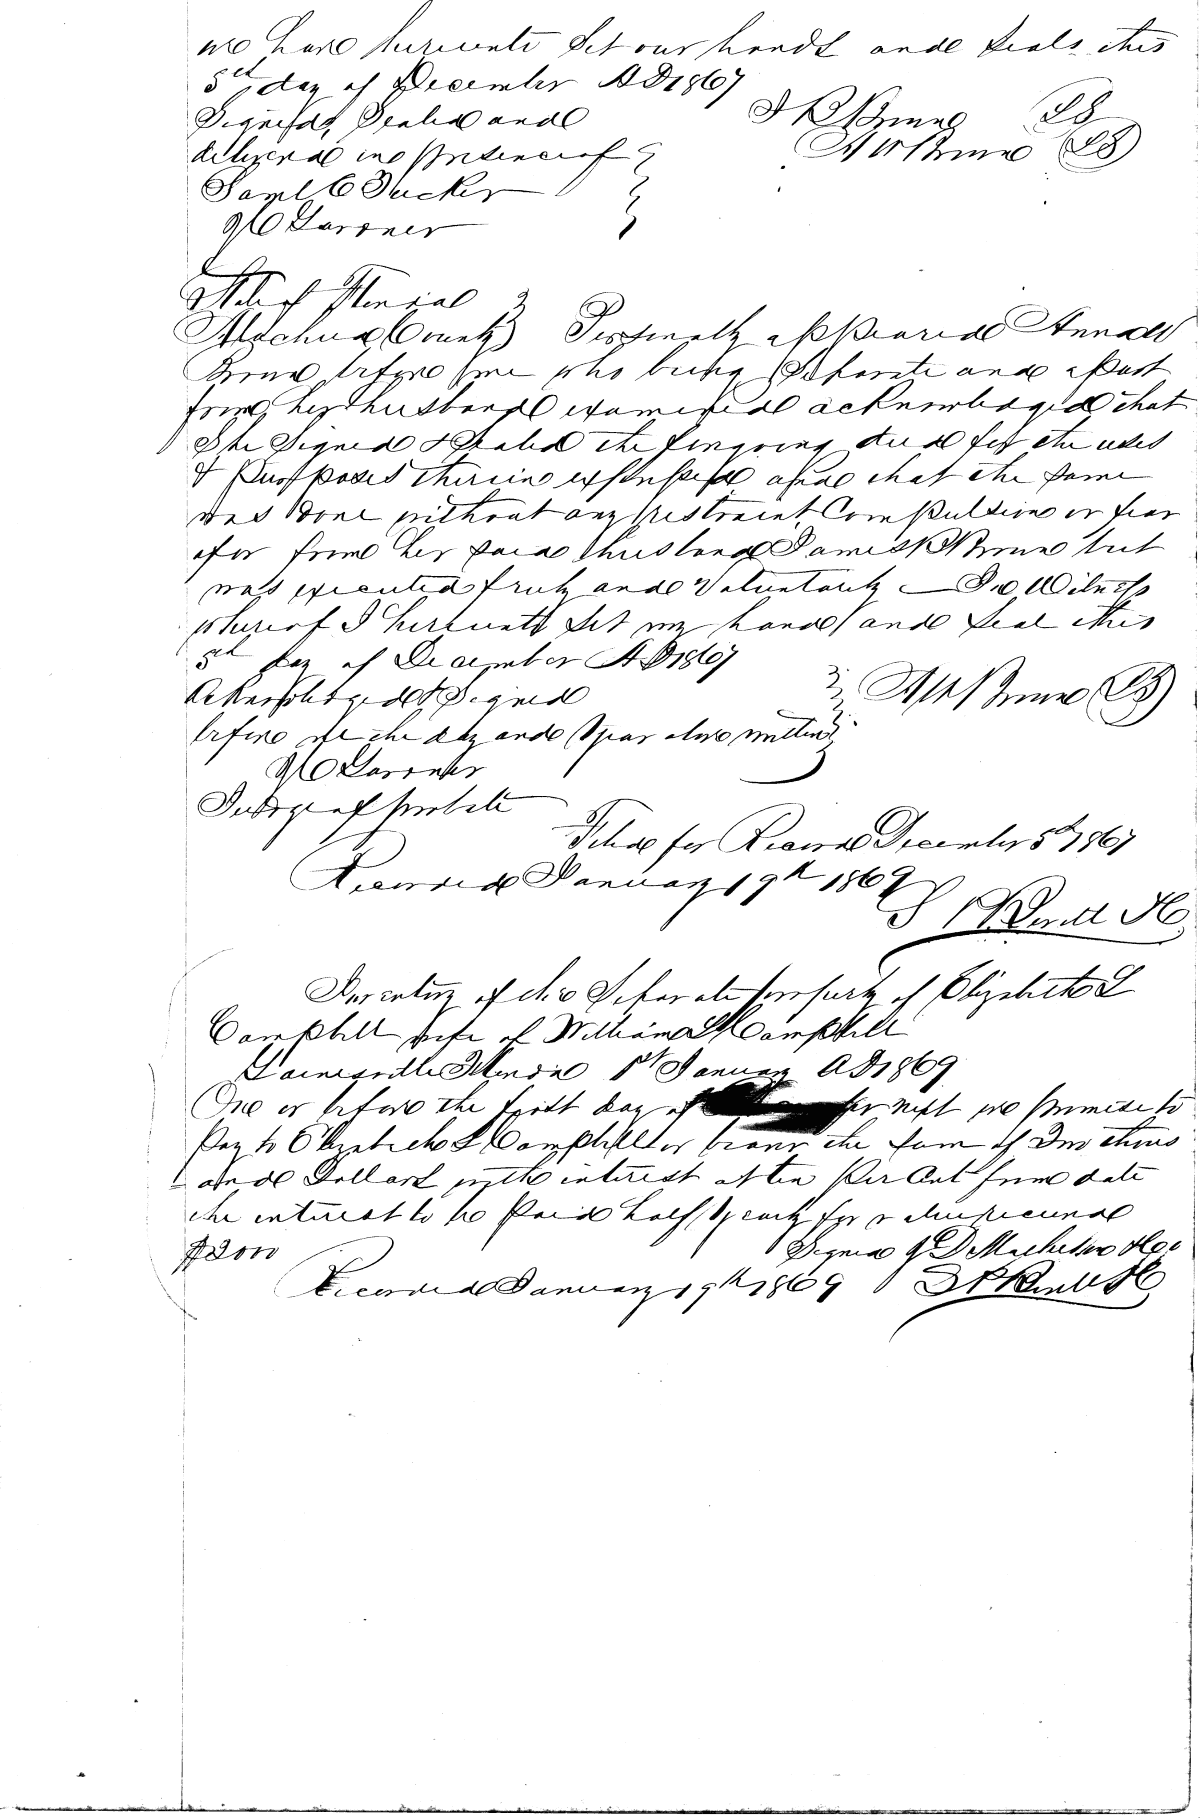 we have hereunto set our hands and seals this
5th day of December AD 1867
Signed, Sealed and
delivered in presence of
Saml C Tucker
Gardner
State of Florida
Alachua County Personally appeared
before me who being separate and apart
from her husband examined acknowledged that
she signed & sealed the foregoing deed for the uses
& purposes therein expressed and that the same
was done without any restraint, Compulsion or fear
of or from her said husband James but
was executed freely and Voluntarily — In Witness
whereof I hereunto set my hand and seal this
5th day of December AD 1867
Acknowledged & Signed
before me the day and year above written
Judge of probate
Filed for Record December 5th 1867
Recorded January 19th 1869
Inventory of the Separate property of Elizabeth L
Campbell wife of William Campbell
Gainesville Florida 1st January AD 1869
One or before the first day of next we promise to
Pay to Elizabeth L Campbell or bearer the sum of Two thous
and Dollars with interest at ten per Cent from date
the interest to be paid half yearly for value received
$2000
Signed & Co
Recorded January 19th 1869